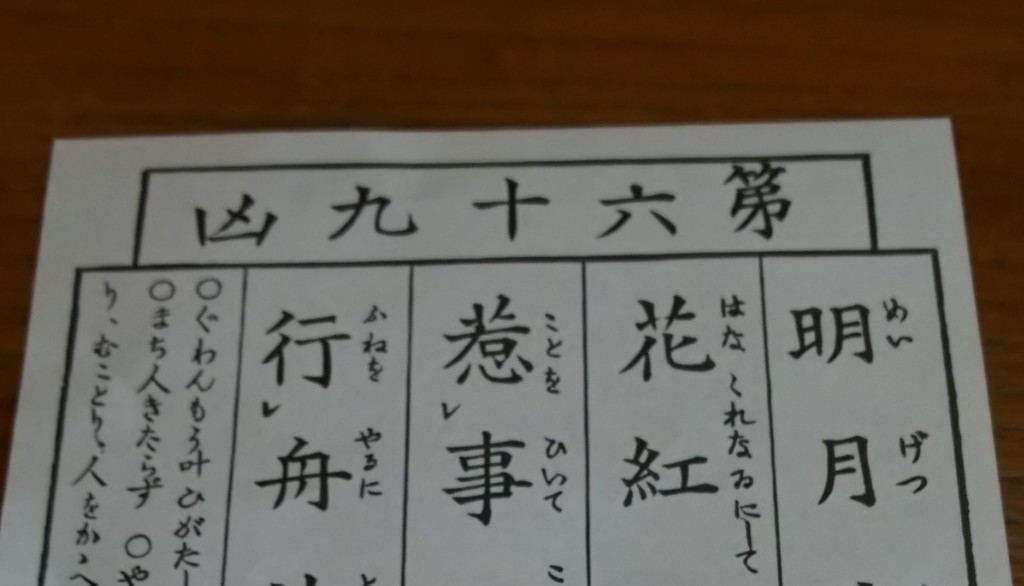 第六十九凶
めい げつ
明月
はな くれなゐにして
花紅
ことを ひいて こ
惹レ事
ふねを やるに と
行レ舟
○ぐわんもう叶ひがたし
○まち人きたらず ○や
り、むことり、人をかゝへ